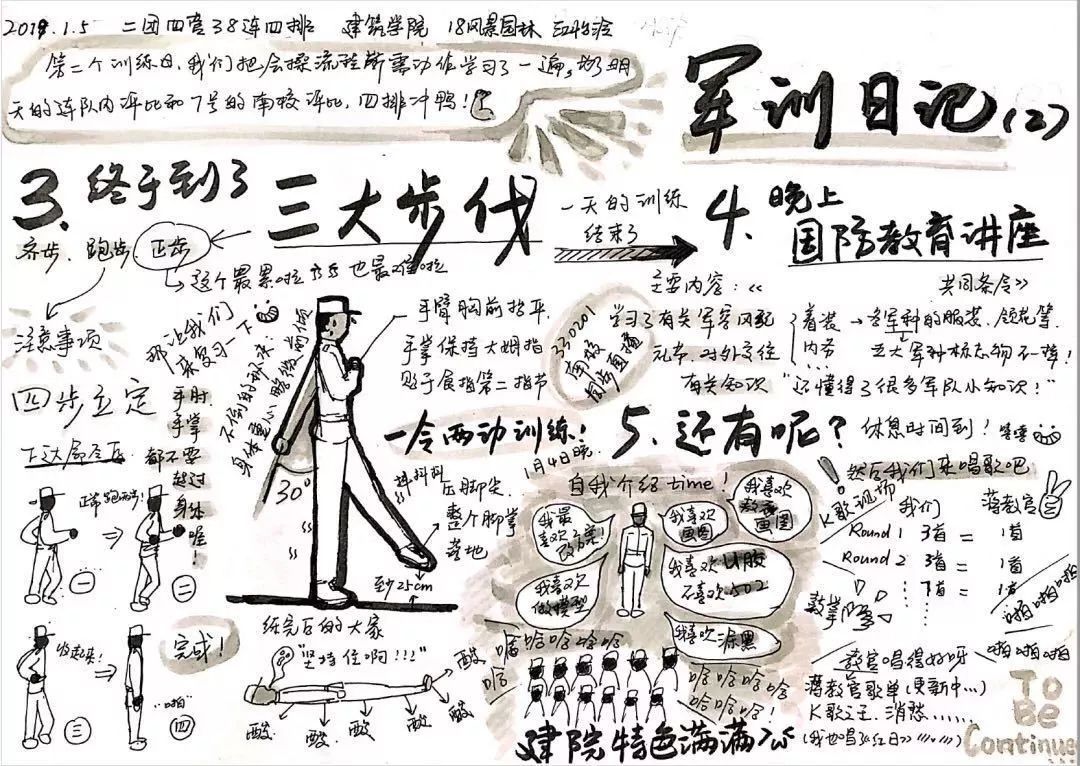 2019.1.5 二团四营38连四排 建筑学院 18风景园林
第二个训练日,我们把会操流程所需动作学习了一遍,为了明
天的连队内评比和7号的南校评比,四排冲鸭!
军训日记(2)
3. 终于到了 三大步伐
齐步、跑步、正步
这个最累啦 也最难啦
注意事项
那让我们
来复习一下
四步立定
下达口令后
手肘
手掌
都不要
超过
身体
喔!
正常跑两步!
一
二
收起来!
三
"啪"
四
完成!
不倒的秘诀:
身体重心脚缓前倾
30°
手臂胸前指平
手掌保持大姆指
贴于食指第二指节
一令两动训练!
抖抖抖
压脚尖
整个脚掌
著地
至少25cm
练完后的大家
"坚持住啊!!!"
酸
酸
酸
酸
酸
酸
一天的训练
结束了
4. 晚上
国防教育讲座
主要内容:《 共同条令》
学习了有关军容风纪
礼节、对外交往
有关知识
着装→各军种的服装、领花等
内务 五大军种标志物不一样!
"还懂得了很多军队小知识!"
330201
南校
同步直播
5. 还有呢?
休息时间到!
1月4日晚
自我介绍time!
我最
喜欢
改方案!
我喜欢
画图
我喜欢
熬夜
画图
我喜欢
做模型
我喜欢U胶
不喜欢502
我喜欢涂黑
哈哈哈哈哈哈
哈
哈
哈哈哈哈
哈哈哈哈
哈哈哈!
建院特色满满
然后我们来唱歌吧
K歌现场
我们 蒲教官
Round 1 3首 = 1首
Round 2 3首 = 1首
⋮ ⋮ 7首 = 1首
鼓掌
啪啪啪啪
啪啪啪啪
教官唱得好呀
蒲教官歌单(更新中...)
K歌之王、消愁......
(我也唱《红日》
To
Be
Continue
...